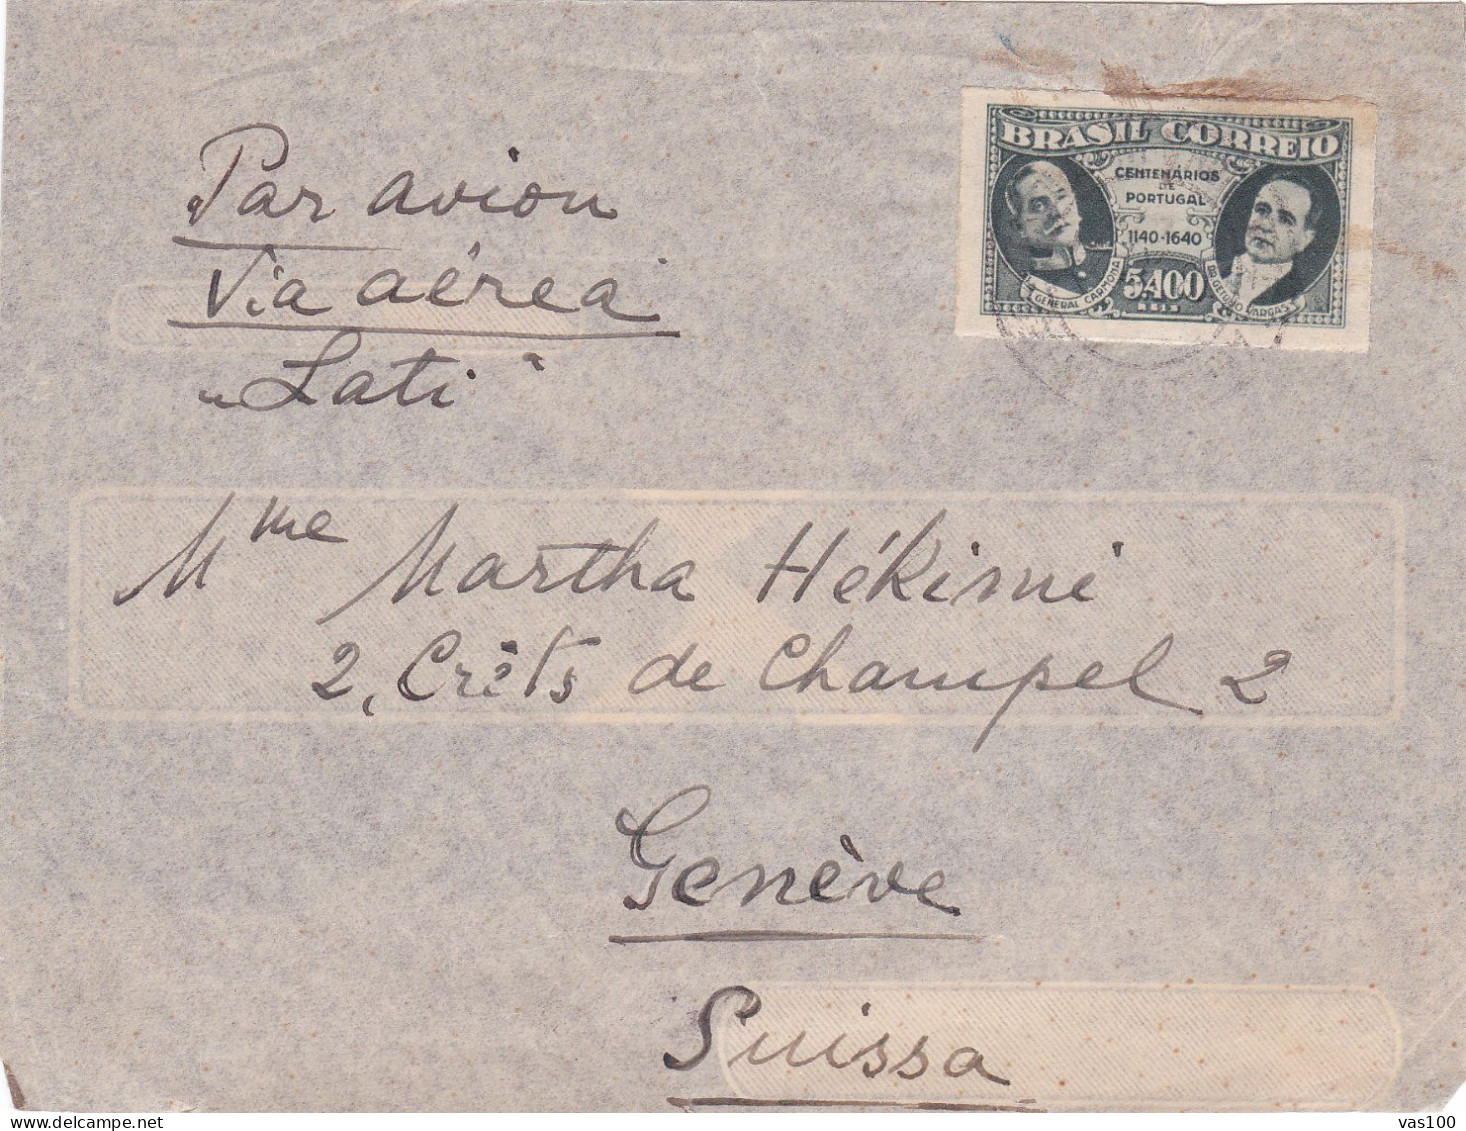 Par avion
Via aérea
„Lati"
BRASIL CORREIO
CENTENÁRIOS
DE
PORTUGAL
1140-1640
5.400
REIS
GENERAL CARMONA
DR GETULIO VARGAS
Mme Martha Hékimi
2, Crêts de Champel 2
Genève
Suissa
vas100